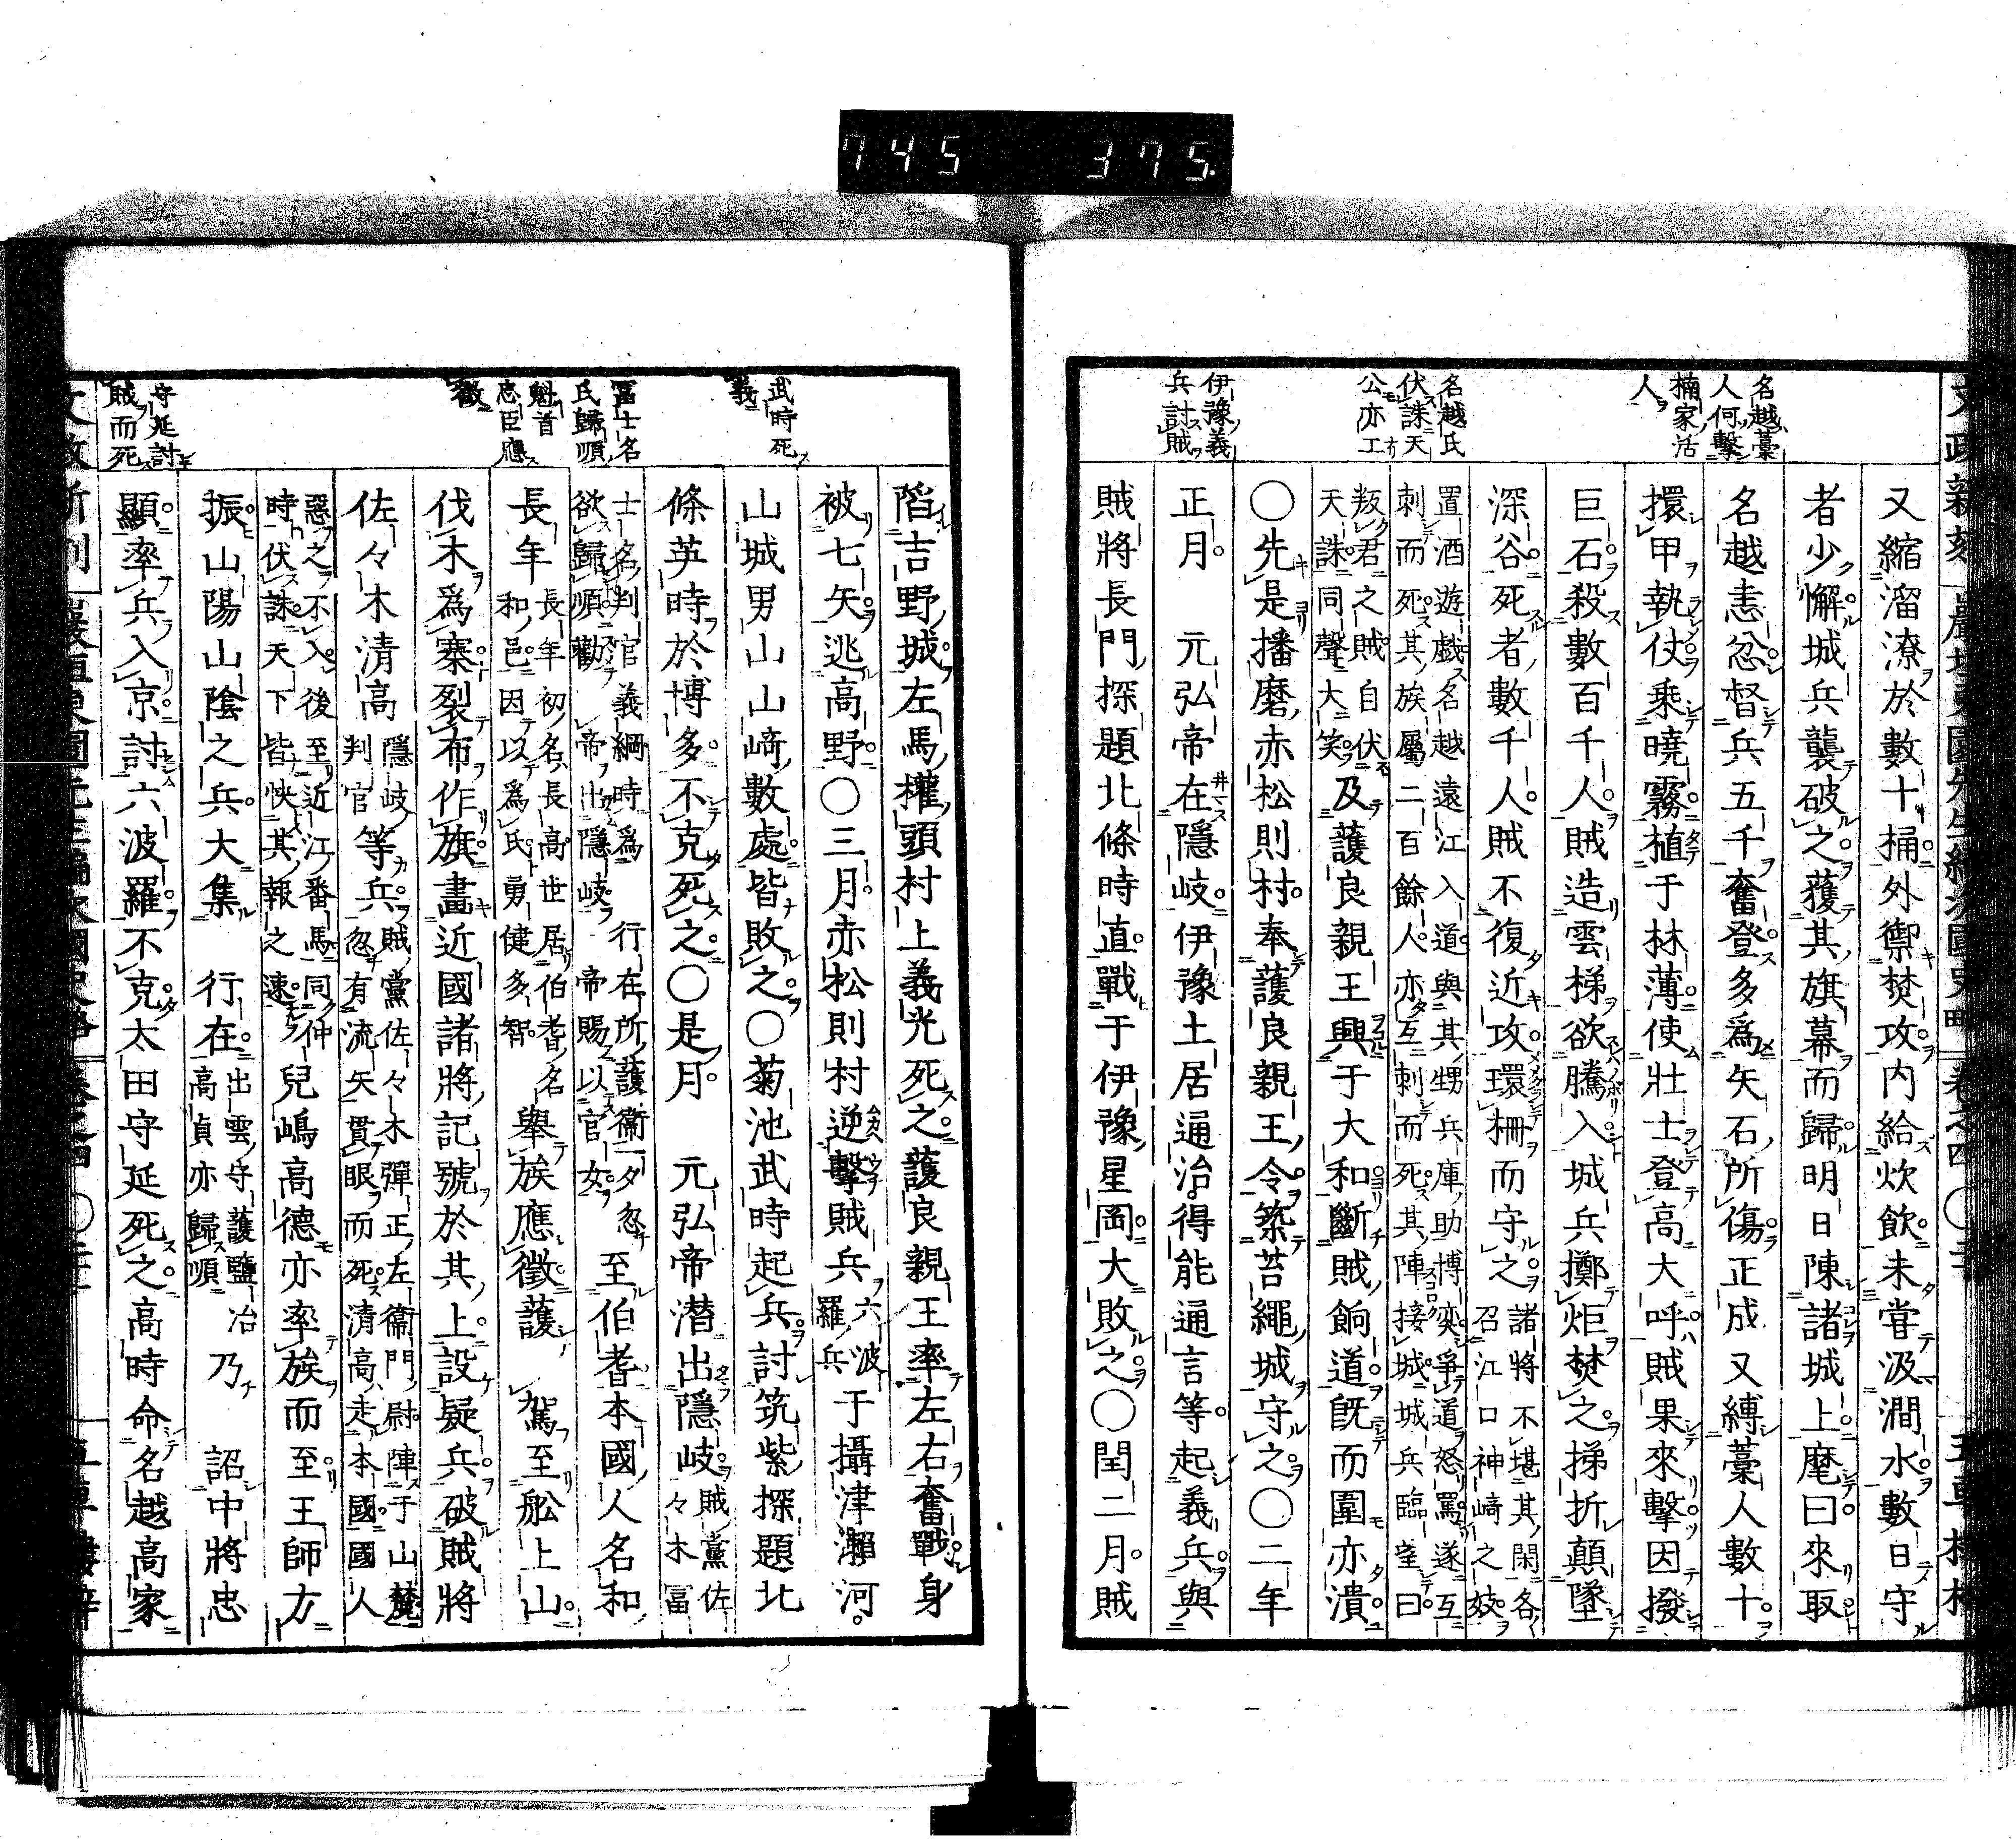 745 375.
名越藁
人何擊
楠家活
人
名越氏
伏誅天
公亦工
伊豫義
兵討賊
又縮溜潦於數十桶外禦焚攻内給炊飲未嘗汲澗水數日守
者少懈城兵襲破之獲其旗幕而歸明日陳諸城上麾曰來取
名越恚忿督兵五千奮登多爲矢石所傷正成又縛藁人數十
擐甲執仗乘曉霧植于林薄使壯士登高大呼賊果來擊因撥
巨石殺數百千人賊造雲梯欲騰入城兵擲炬焚之梯折顛墜
深谷死者數千人賊不復近攻環柵而守之諸將不堪其閑各
召江口神﨑之妓
置酒遊戯名越遠江入道與其甥兵庫助博奕爭道怒罵遂互
刺而死其族屬二百餘人亦互刺而死其陣接城城兵臨望曰
叛君之賊自伏
天誅同聲大笑及護良親王興于大和斷賊餉道既而圍亦潰
〇先是播磨赤松則村奉護良親王令築苔繩城守之〇二年
正月元弘帝在隱岐伊豫土居通治得能通言等起義兵與
賊將長門探題北條時直戰于伊豫星岡大敗之〇閏二月賊
武時死
義
冨士名
氏歸順
魁首
忠臣應
徵
守延討
賊而死
陷吉野城左馬權頭村上義光死之護良親王率左右奮戰身
被七矢逃高野〇三月赤松則村逆擊賊兵六波
羅兵于攝津瀨河
山城男山山﨑數處皆敗之〇菊池武時起兵討筑紫探題北
條英時於博多不克死之〇是月元弘帝潜出隱岐賊黨佐
々木冨
士名判官義綱時爲行在所護衞一夕忽
欲歸順勸帝出隱岐帝賜以官女至伯耆本國人名和
長年長年初名長高世居伯耆名
和邑因以爲氏勇健多智舉族應徵護駕至舩上山
伐木爲寨裂布作旗畫近國諸將記號於其上設疑兵破賊將
佐々木清高隱岐
判官等兵賊黨佐々木彈正左衞門尉陣于山麓
忽有流矢貫眼而死清高走本國國人
惡之不入後至近江番馬同仲
時伏誅天下皆快其報之速兒嶋高德亦率族而至王師方
振山陽山陰之兵大集行在出雲守護鹽冶
高貞亦歸順乃詔中將忠
顯率兵入京討六波羅不克太田守延死之高時命名越高家